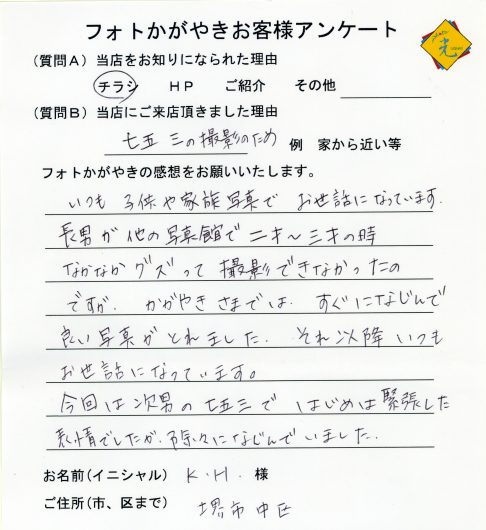 フォトかがやきお客様アンケート
(質問A)当店をお知りになられた理由
チラシ HP ご紹介 その他
(質問B)当店にご来店頂きました理由
七五三の撮影のため 例 家から近い等
フォトかがやきの感想をお願いいたします。
いつも子供や家族写真で お世話になっています.
長男が他の写真館で二才～三才の時
なかなかグズって撮影できなかったの
ですが. かがやきさまでは. すぐになじんで
良い写真がとれました. それ以降いつも
お世話になっています。
今回は次男の七五三で はじめは緊張した
表情でしたが. 除々になじんでいました.
お名前(イニシャル) K.H. 様
ご住所(市、区まで) 堺市中区